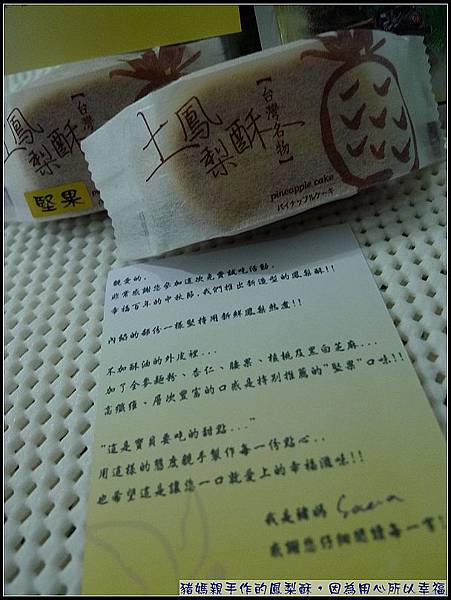 土鳳
梨酥
【台灣
堅果
土鳳
梨酥
【台灣名物】
pineapple cake
パイナップルケーキ
親愛的,
非常感謝您參加這次免費試吃活動,
幸福百年的中秋節,我們推出新造型的鳳梨酥!!
內餡的部份一樣堅持用新鮮鳳梨熬煮!!
不加酥油的外皮裡...
加了全麥麵粉、杏仁、腰果、核桃及黑白芝麻...
高纖維、層次豐富的口感是特別推薦的"堅果"口味!!
"這是寶貝要吃的甜點..."
用這樣的態度親手製作每一份點心..
也希望這是讓您一口就愛上的幸福滋味!!
我是豬媽 Sara
感謝您仔細閱讀每一字!
豬媽親手作的鳳梨酥。因為用心所以幸福